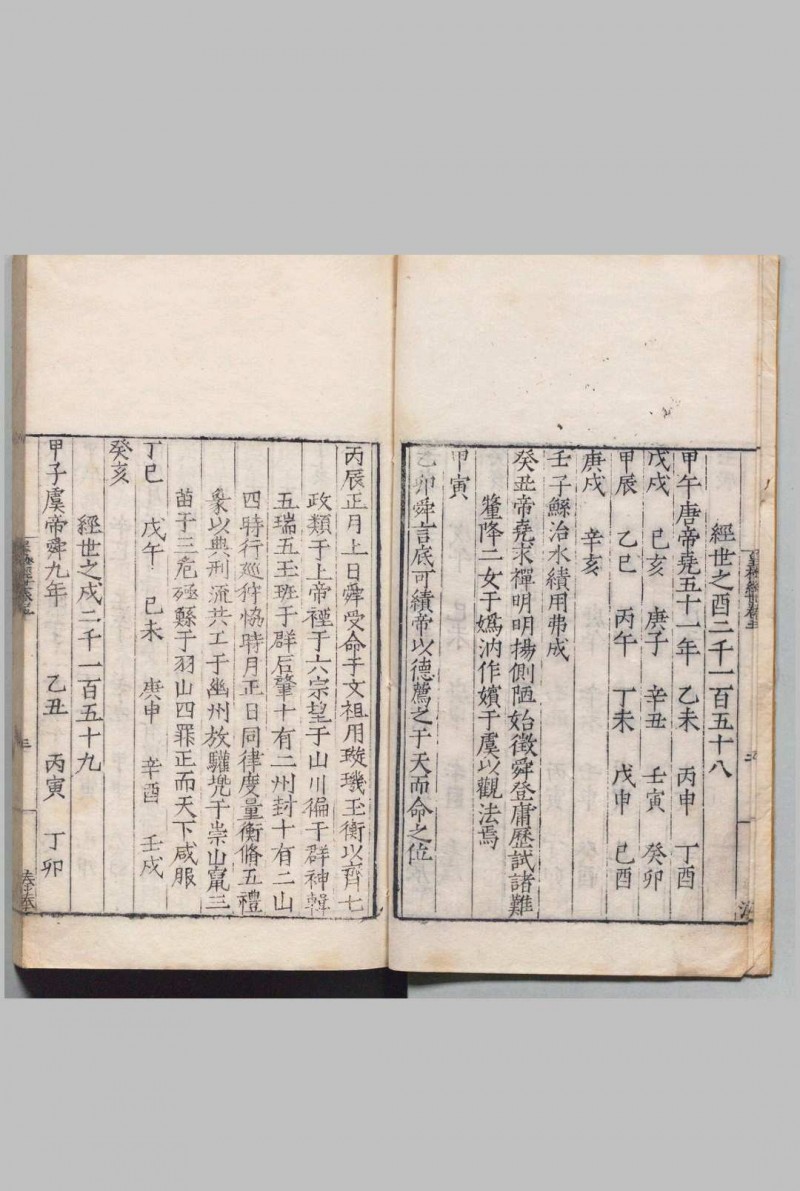 經世之酉二千一百五十八
甲午唐帝堯五十一年 乙未 丙申 丁酉
戊戌 己亥 庚子 辛丑 壬寅 癸卯
甲辰 乙巳 丙午 丁未 戊申 己酉
庚戌 辛亥
壬子鯀治水績用弗成
癸丑帝堯求禪明明揚側陋始徵舜登庸歷試諸難
釐降二女于嬀汭作嬪于虞以觀法焉
甲寅
乙卯舜言底可績帝以德薦之于天而命之位
丙辰正月上日舜受命于文祖用璇璣玉衡以齊七
政類于上帝禋于六宗望于山川徧于群神輯
五瑞五玉班于群后肇十有二州封十有二山
四時行巡狩恊時月正日同律度量衡脩五禮
象以典刑流共工于幽州放驩兠于崇山竄三
苗于三危殛鯀于羽山四罪正而天下咸服
丁巳 戊午 己未 庚申 辛酉 壬戌
癸亥
經世之戌二千一百五十九
甲子虞帝舜九年 乙丑 丙寅 丁卯